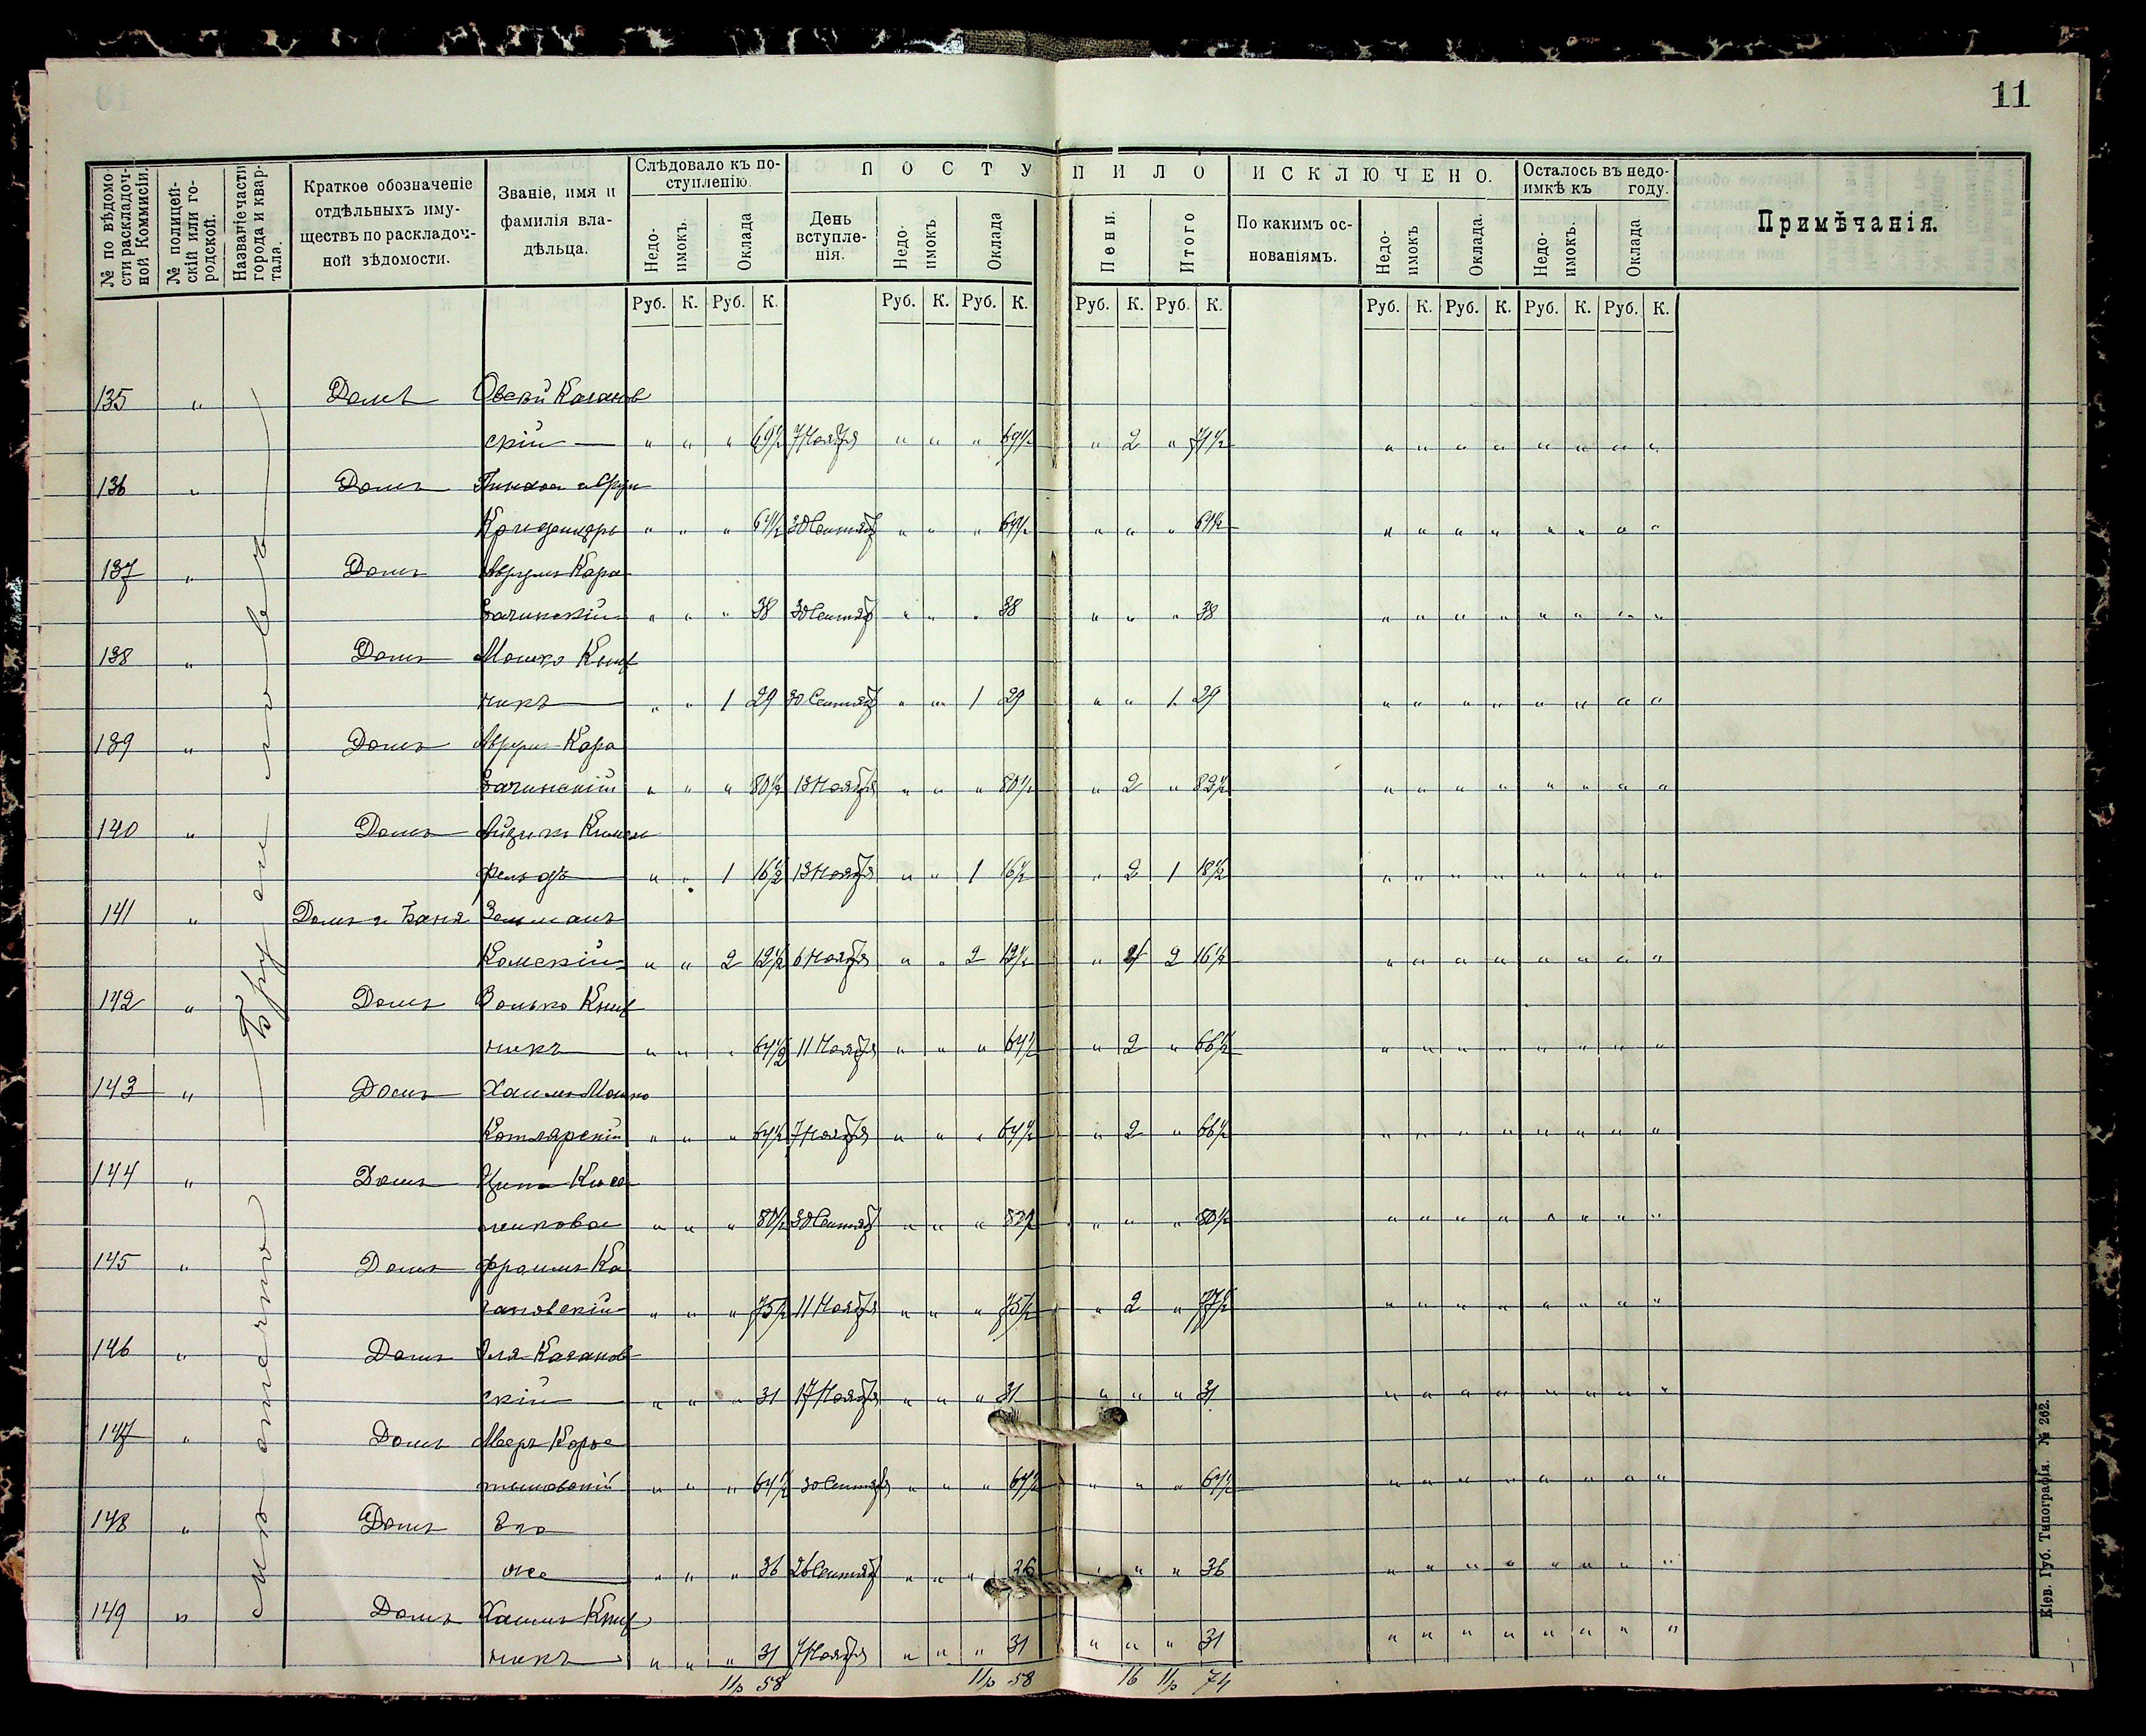 11
№ по вѣдомо-
сти раскладоч-
ной Коммисіи.
№ полицей-
скій или го-
родской.
Названіе части
города и квар-
тала.
Краткое обозначеніе
отдѣльныхъ иму-
ществъ по раскладоч-
ной зѣдомости.
Званіе, имя и
фамилія вла-
дѣльца.
Слѣдовало къ по-
ступленію.
Недо-
имокъ.
Оклада
П О С Т У П И Л О
День
вступле-
нія.
Недо-
имокъ.
Оклада
Пени.
Итого
И С К Л Ю Ч Е Н О.
По какимъ ос-
нованіямъ.
Недо-
имокъ
Оклада.
Осталось въ недо-
имкѣ къ году.
Недо-
имокъ.
Оклада
Примѣчанія.
Руб. К. Руб. К. Руб. К. Руб. К. Руб. К. Руб. К. Руб. К. Руб. К. Руб. К. Руб. К.
мѣстечко
135 " Домъ Овсей Каганов
скій " " " 69½ 7 Ноября " " " 69½ " 2 " 71½ " " " " " " " "
136 " Домъ
" " " 64½ 30 Сентяб " " " 64½ " " " 64½ " " " " " " " "
137 " Домъ Аврумъ Кара
бачинскій " " " 38 30 Сентяб " " " 38 " " " 38 " " " " " " " "
138 " Домъ Мошко Книж
никъ " " 1 29 30 Сентяб " " 1 29 " " 1 29 " " " " " " " "
139 " Домъ Аврумъ Кара
бачинскій " " " 80½ 13 Ноября " " " 80½ " 2 " 82½ " " " " " " " "
140 " Домъ Айзикъ
фельдъ " " 1 16½ 13 Ноября " " 1 16½ " 2 1 18½ " " " " " " " "
141 " Домъ и Баня Зельманъ
Камскій " " 2 12½ 6 Ноября " " 2 12½ " 4 2 16½ " " " " " " " "
142 " Домъ Волько Книж
никъ " " " 64½ 11 Ноября " " " 64½ " 2 " 66½ " " " " " " " "
143 " Домъ Хаимъ Мошко
Котлярскій " " " 64½ 7 Ноября " " " 64½ " 2 " 66½ " " " " " " " "
144 " Домъ
" " " 80½ 30 Сентяб " " " 80½ " " " 80½ " " " " " " " "
145 " Домъ Фроимъ Ка
гановскій " " " 75½ 11 Ноября " " " 75½ " 2 " 77½ " " " " " " " "
146 " Домъ Эля Каганов
скій " " " 31 17 Ноября " " " 31 " " " 31 " " " " " " " "
147 " Домъ Мееръ Корсо
" " " 64½ 30 Сентяб " " " 64½ " " " 64½ " " " " " " " "
148 " Домъ Его
же " " " 36 26 Сентяб " " " 36 " " " 36 " " " " " " " "
149 " Домъ Хаимъ Книж
никъ " " " 31 7 Ноября " " " 31 " " " 31 " " " " " " " "
11р 58 11р 58 16 11р 74
Кіев. Губ. Типографія. № 262.